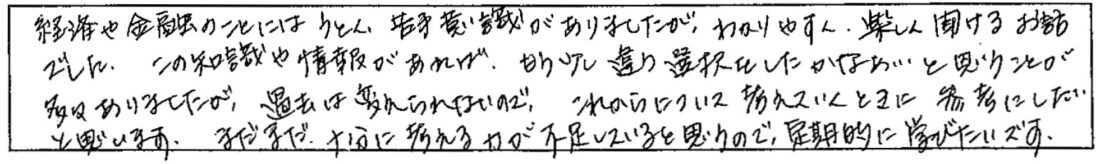 経済や金融のことにはうとく、苦手意識がありましたが、わかりやすく、楽しく聞けるお話
でした。この知識や情報があれば、もう少し違う選択をしたかなぁ…と思うことが
多々ありましたが、過去は変えられないので、これからについて考えていくときに参考にしたい
と思います。まだまだ、十分に考える力が不足していると思うので、定期的に学びたいです。